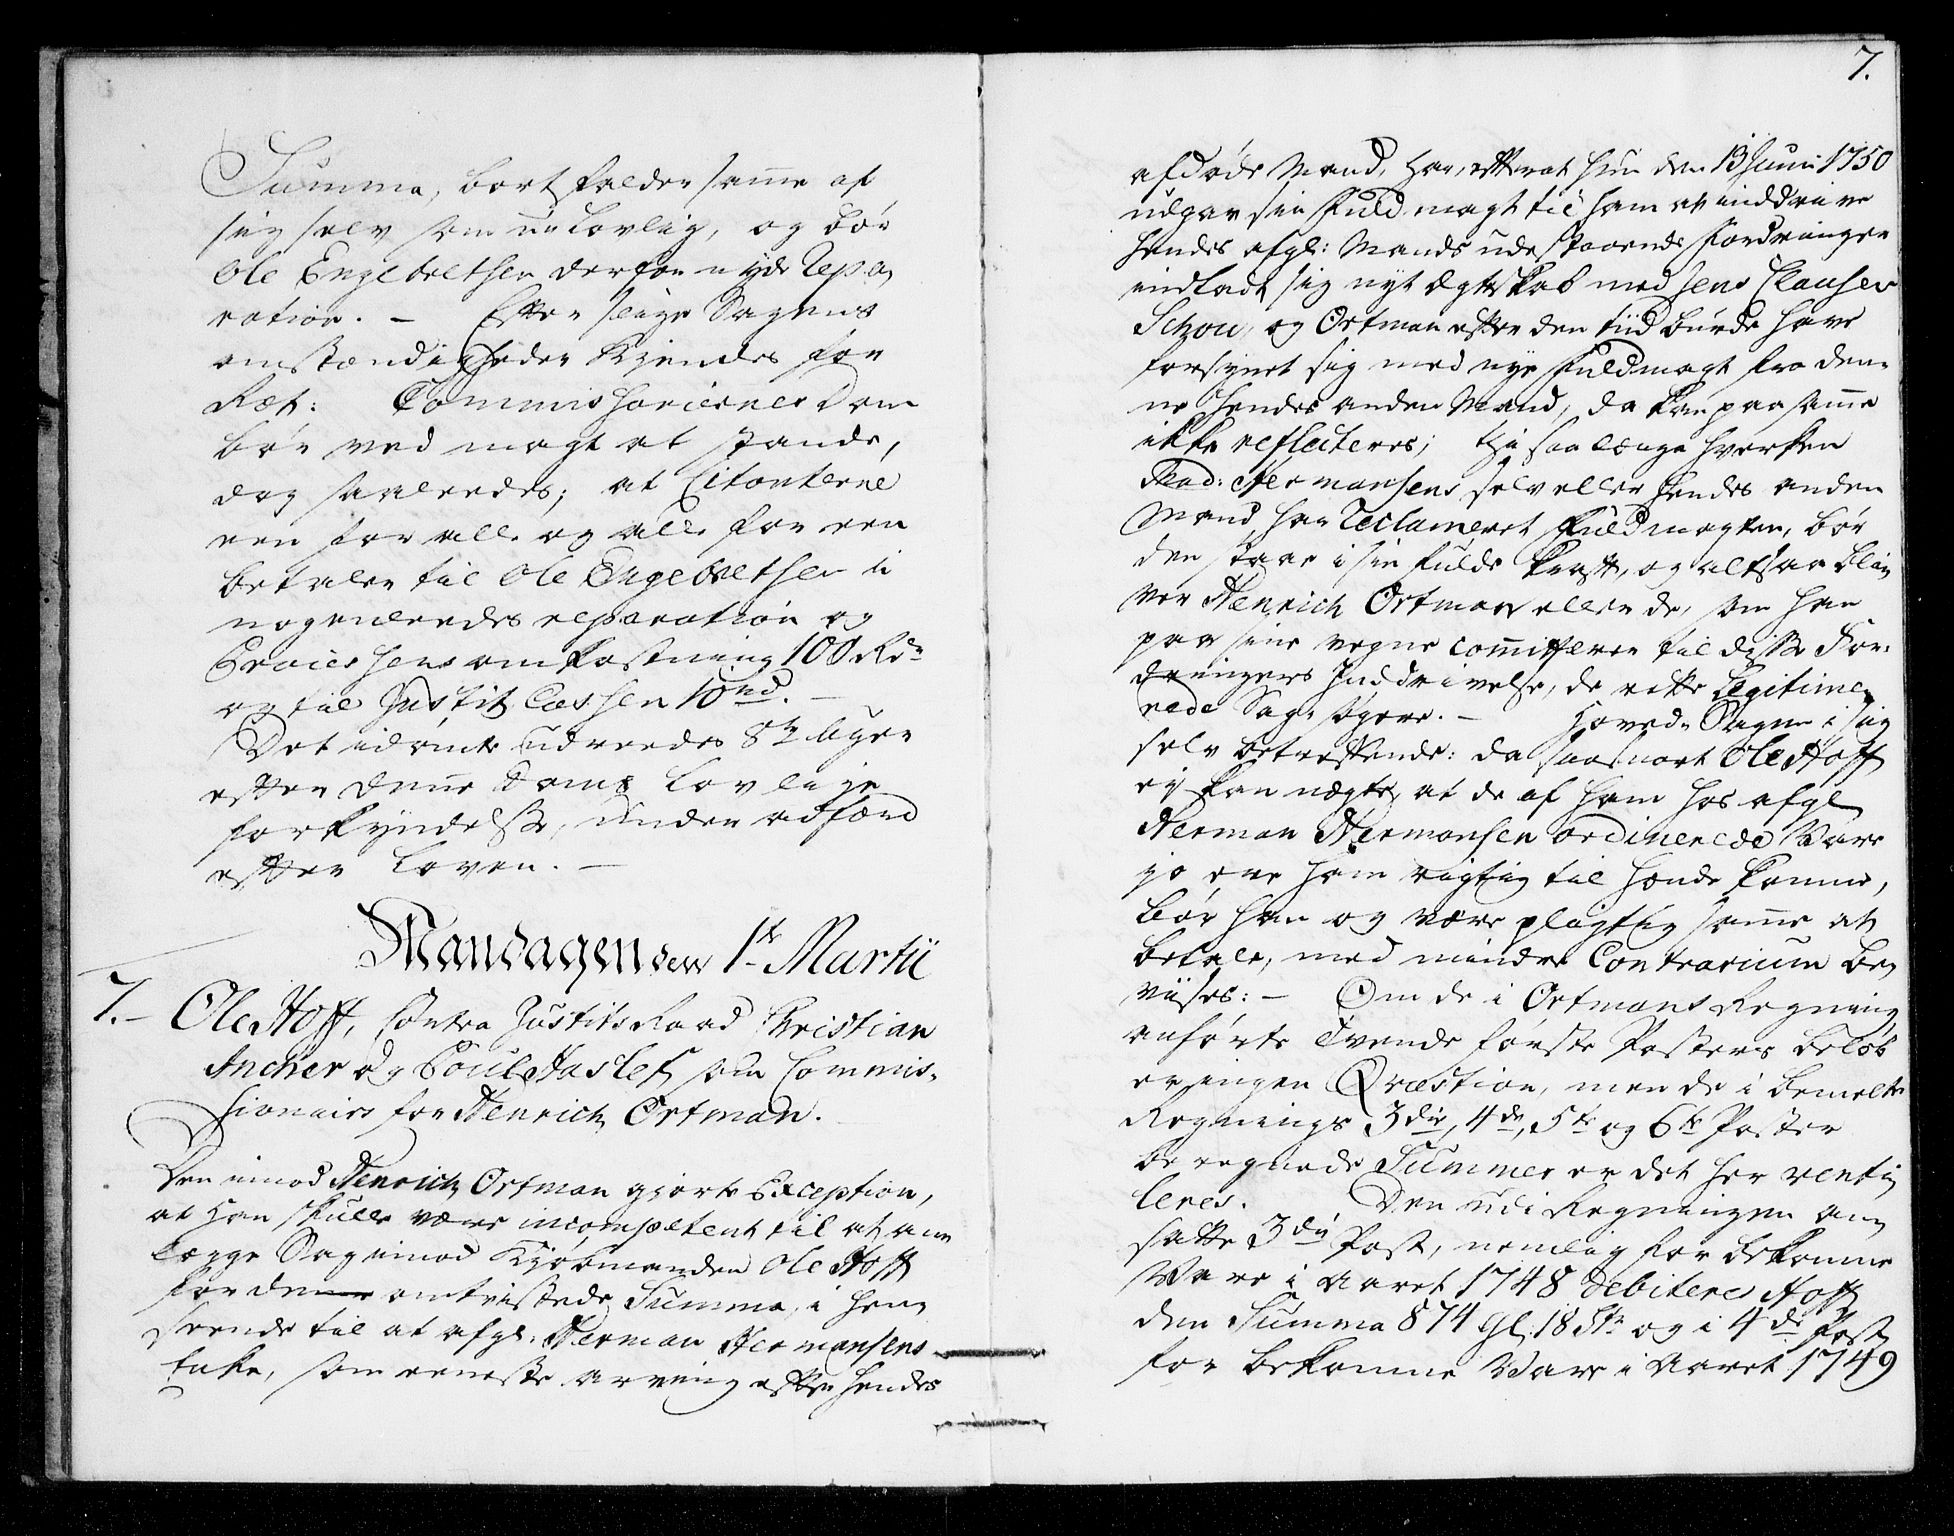 Summa, bortfalder samme af
sig selv som ulovlig, og bør
Ole Engebretsen derfor nyde repa,
ration. – Efter slige Sagens
omstændigheder kiendes for
Ræt: Commissariernes Dom
bør ved magt at stande,
dog saaledes; at Citanterne
een for alle og alle for een
betaler til Ole Engebretsen i
nogenleedes reparation og
Processens omkostning 100 Rdr
og til Justitz Cassen 10 rd. –
Det idømte udreedes 8te Uger
efter denne Doms lovlige
forkyndelse, under adfærd
efter Loven. –
Mandagen den 1te Martii
7. – Ole Hoff, contra Justits Raad Christian
Ancher og Poul Haslef som Commis-
sionairs for Henrich Ortman.
Den imod Henrich Ortman gjorte Exception,
at han skulle være incompetent til at an
lægge Sag imod Kjøbmanden Ole Hoff
for den omtvistede Summa, i hen,
seende til at afgl. Herman Hermansens
Enke, som eeneste arving efter hendes
7.
afdøde Mand, har, efterat hun den 13 Juni 1750
udgav sin Fuldmagt til ham at inddrive
hendes afgl: Mands udestaaende Fordringer
indladt sig nyt Ægteskab med Jens Clausen
Schou, og Ortman efter den tiid burde have
forsynet sig med nye Fuldmagt fra den-
ne hendes anden Mand, da kan paa samme
ikke reflecteres; thi saa længe hverken
Mad: Hermansens selv eller hendes anden
Mand har reclameret Fuldmagten, bør
den staae i sin fulde kraft, og altsaa bli,
ver Henrich Ortman eller de, som han
paa sine vegne committerer til disse For-
dringers Inddrivelse, de rette legitime,
rede Sagsøgere. – Hoved Sagen i sig
selv betreffende: da saasnart Ole Hoff
ej kan nægte, at de af ham hos afgl
Herman Hermansen ordinerede Vare
jo ere ham rigtig til hænde komne,
bør han og være pligtig samme at
betale, med mindre Contrarium be,
viises: – Om de i Ortmans Regning
anførte Tvende første Posters beløb
er ingen Qvæstion, men de i bemelte
Regnings 3die, 4de, 5te og 6te Poster
beregnede Summer er det her venti,
leres. Den udi Regningen an,
satte 3die Post, nemlig for bekomne
Vare i Aaret 1748 debiteres Hoff
den Summa 874 Gl: 18 Str og i 4de Post
for bekomne Vare i Aaret 1749